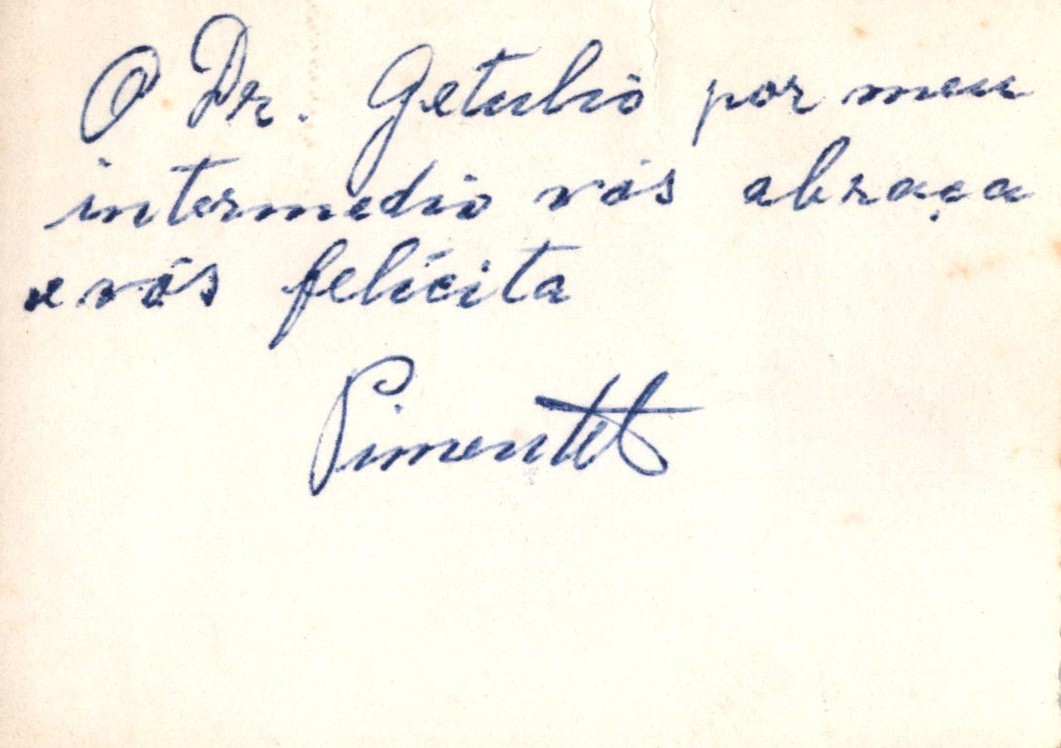 O Dr. Getulio por meu
intermedio vós abraça
e vós felicita
Pimentel